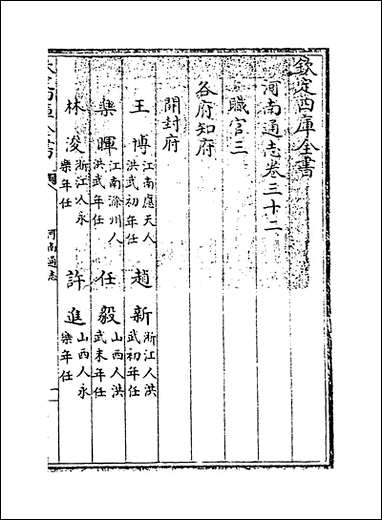 欽定四庫全書
河南通志卷三十二
職官三
各府知府
開封府
王博 江南應天人洪武初年任 趙新 浙江人洪武初年任
欒暉 江南滁州人洪武年任 任毅 山西人洪武末年任
林浚 浙江人永樂年任 許進 山西人永樂年任
河南通志